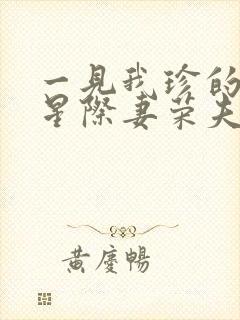 一見我珍的
星際妻荣夫
黄慶暢